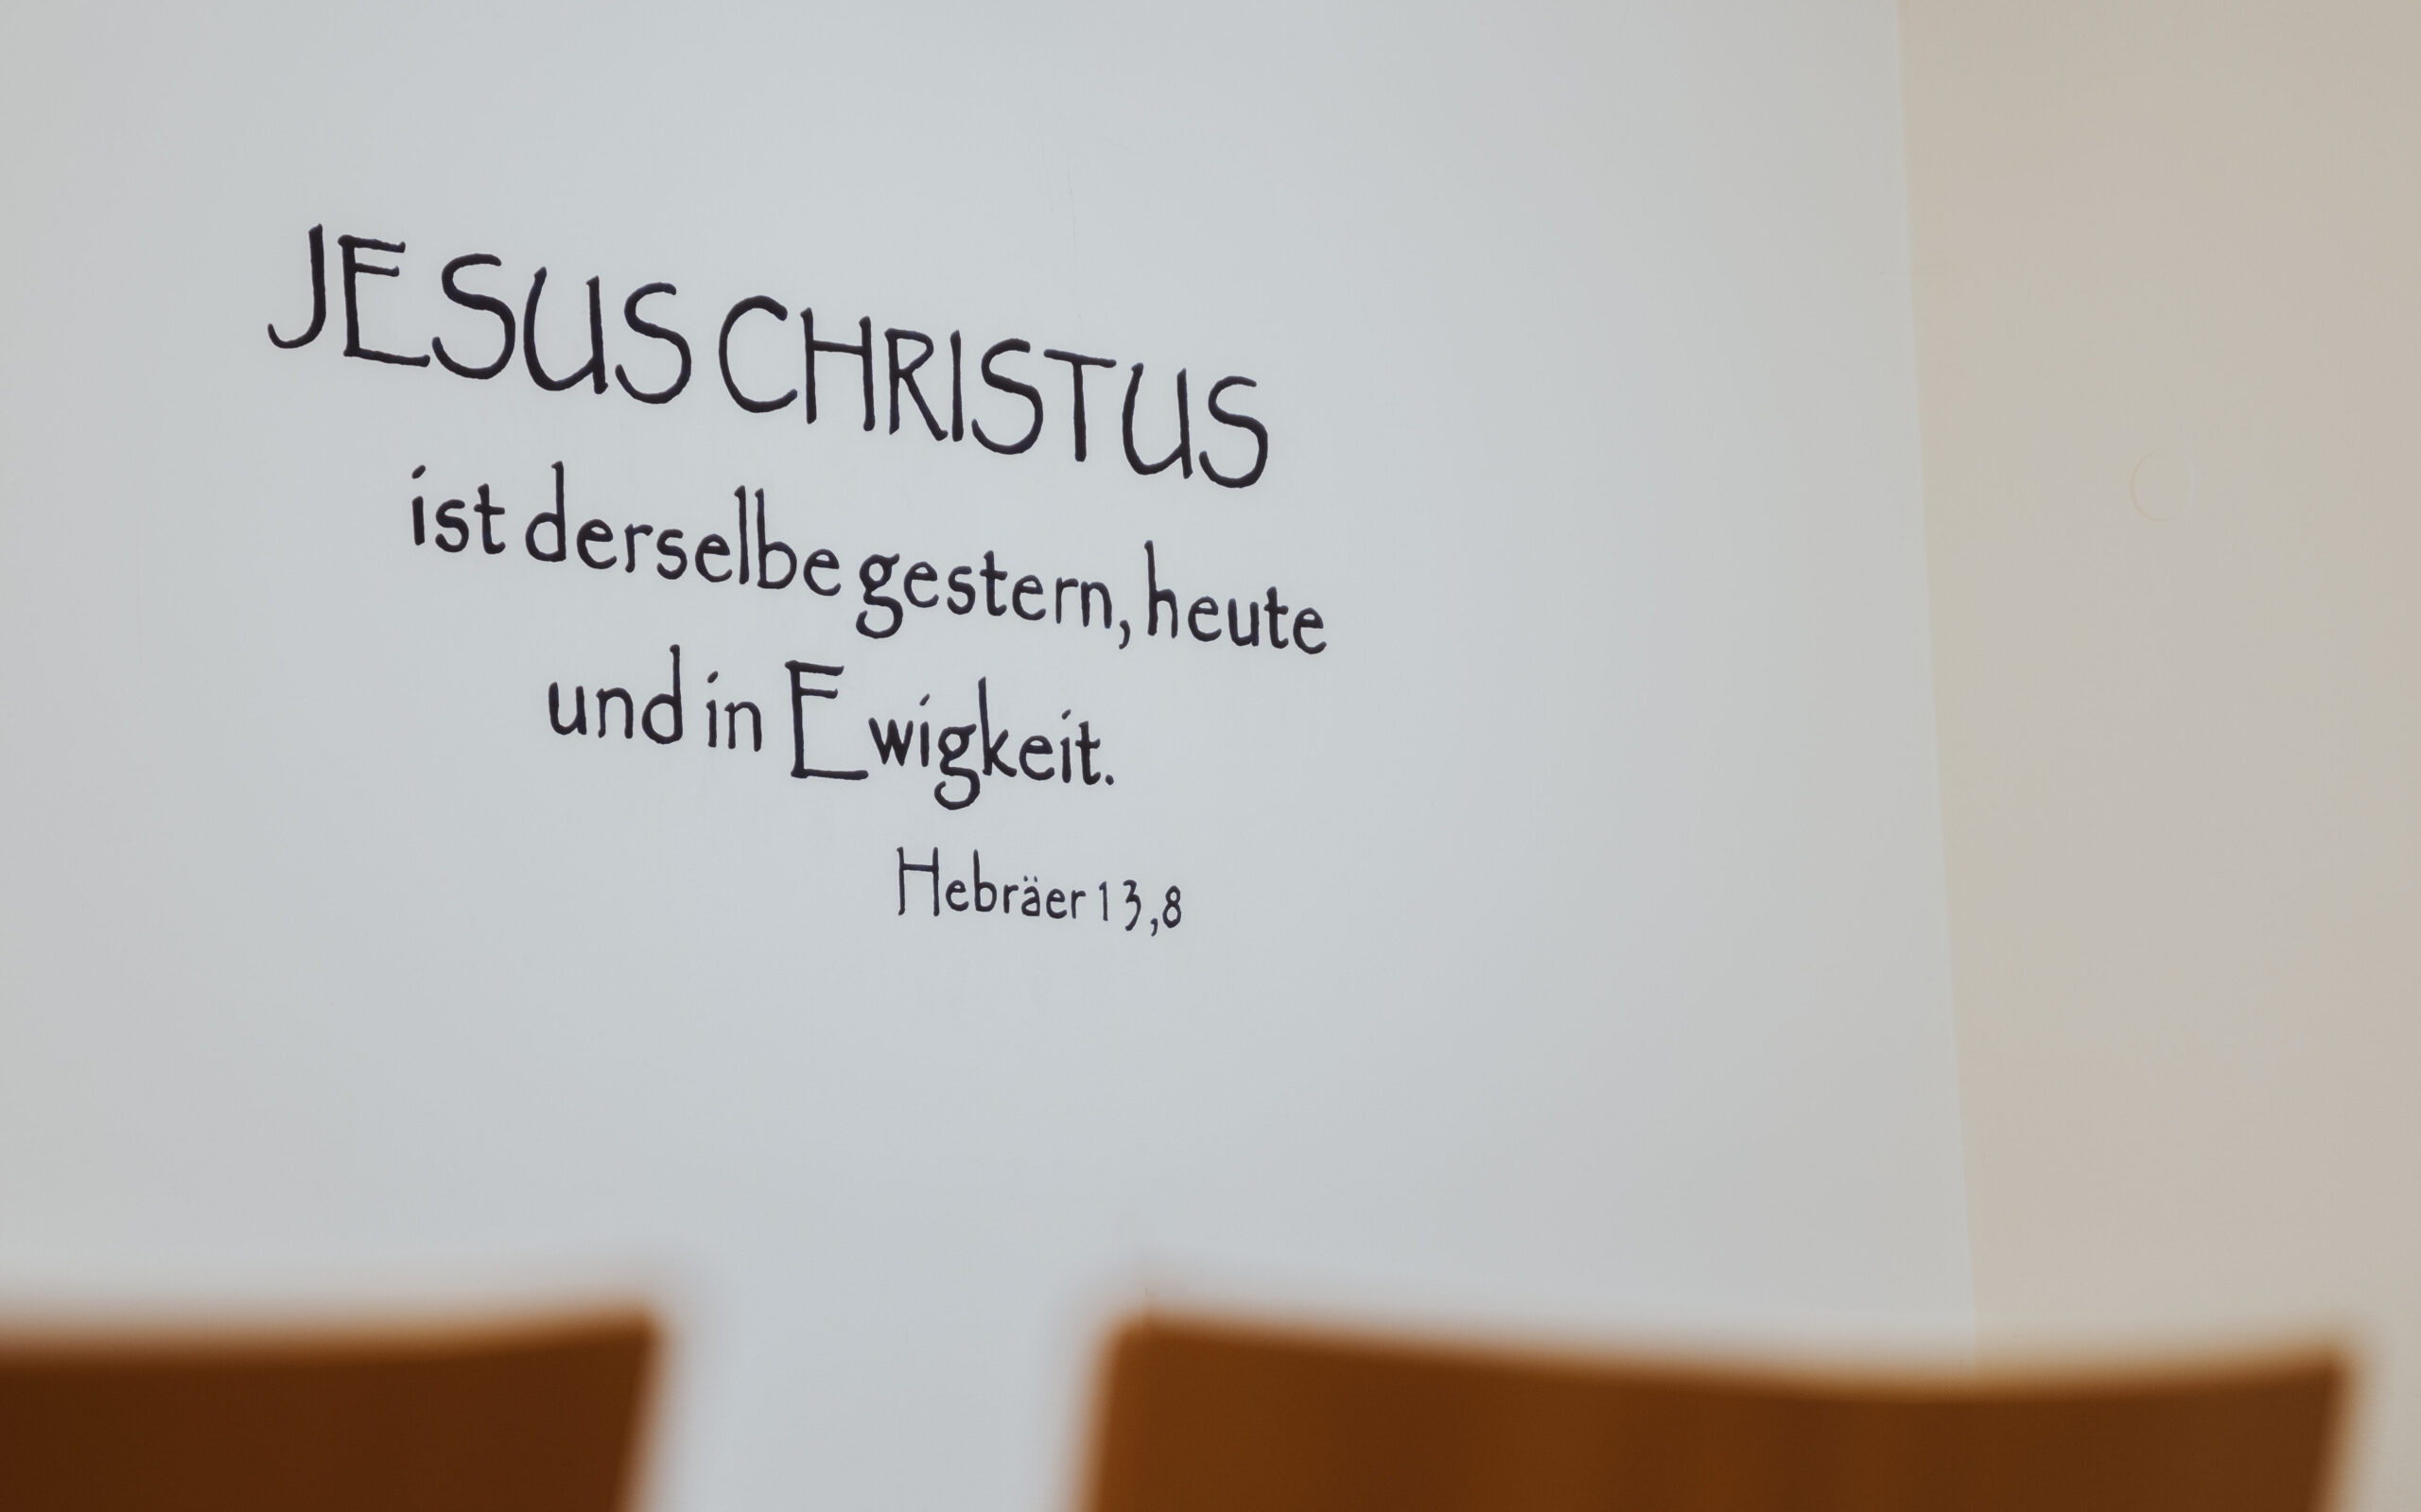 JESUS CHRISTUS
ist derselbe gestern, heute
und in Ewigkeit.
Hebräer 13,8